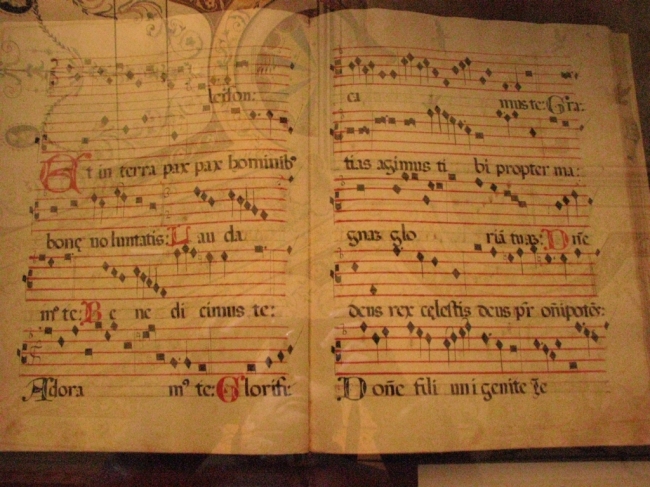 leison:
Et in terra pax pax hominib⁹
bonę uoluntatis: Lau da
m⁹ te: Be ne di cimus te:
Adora m⁹ te: Glorifi:
ca mus te: Gra:
tias agimus ti bi propter ma:
gnaʒ glo riā tuaʒ: Dn̄e
deus rex cęlestis deus pr̄ on̄ipotēs:
Don̄e fili unigenite